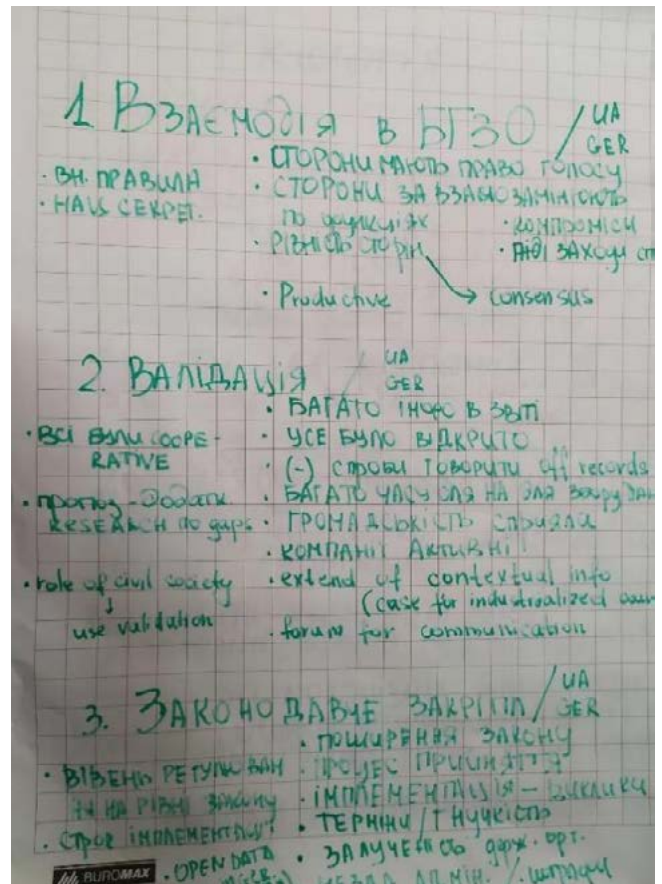 1 Взаємодія в БГЗО / UA
GER
• ВН. ПРАВИЛА
• НАЦ СЕКРЕТ.
• СТОРОНИ МАЮТЬ ПРАВО ГОЛОСУ
• СТОРОНИ
по функціях
• РІВНІСТЬ СТОРІН → consensus
• КОМПРОМІСИ
• Productive
2. ВАЛІДАЦІЯ / UA
GER
• ВСІ БУЛИ COOPE-
RATIVE
• - Додати
RESEARCH по gaps
• role of civil society
↓
use validation
• БАГАТО ІНФО В ЗВІТІ
• УСЕ БУЛО ВІДКРИТО
• (-) спроби говорити off records
• БАГАТО ЧАСУ
• ГРОМАДСЬКІСТЬ СПРИЯЛА
• КОМПАНІЇ АКТИВНІ
• extend of contextual info
(case for industrialized
• forum for communication
3. ЗАКОНОДАВЧЕ ЗАКРІПЛ / UA
GER
• РІВЕНЬ РЕГУЛЮВАН
НА РІВНІ ЗАКОНУ
• СТРОК
• OPEN DATA
• ПОШИРЕННЯ ЗАКОНУ
• ПРОЦЕС ПРИЙНЯТТЯ
• ІМПЛЕМЕНТАЦІЯ – ВИКЛИКИ
• ТЕРМІНИ / ГНУЧКІСТЬ
• ЗАЛУЧЕНІСТЬ держ. орг.
BUROMAX